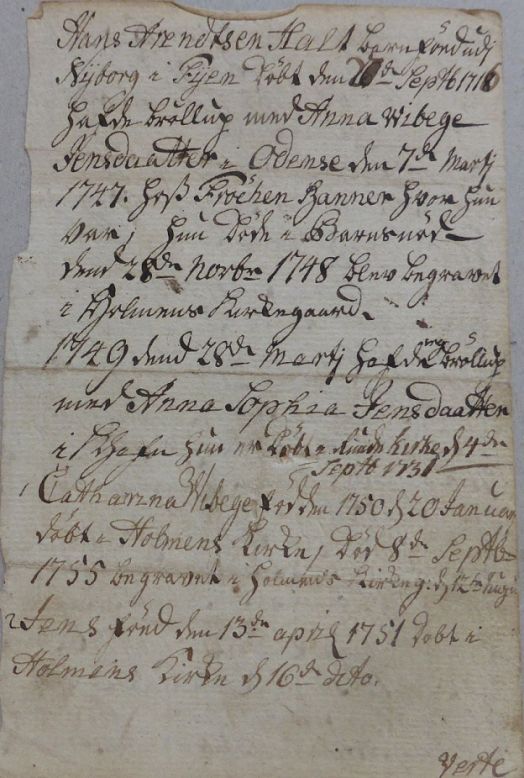 Hans Arendtsen Halt barnføed udj
Nÿborg i Fÿen Døbt den 20de Septb 1716
Hafde brøllup med Anna Wibege
Jensdaatter i Odense den 7de Martj
1747. hoß Frøchen Banner hvor hun
var, hun døde i Barnsnød
dend 28de Novbr 1748 blev begravet
i Holmens Kirkegaard.
1749 dend 28de Martj hafde brøllup
med Anna Sophia Jensdaatter
i Khafn hun er døbt i Runde Kirke d 4de
Septb 1731
1 Catharina Wibege fød den 1750 d 20 Januar
døbt i Holmens Kirke, Død 8de Septb
1755 begravet i Holmens Kirkeg: d 12te
2 Jens føed den 13de april 1751 døbt i
Holmens Kirke d 16de dito.
Verte